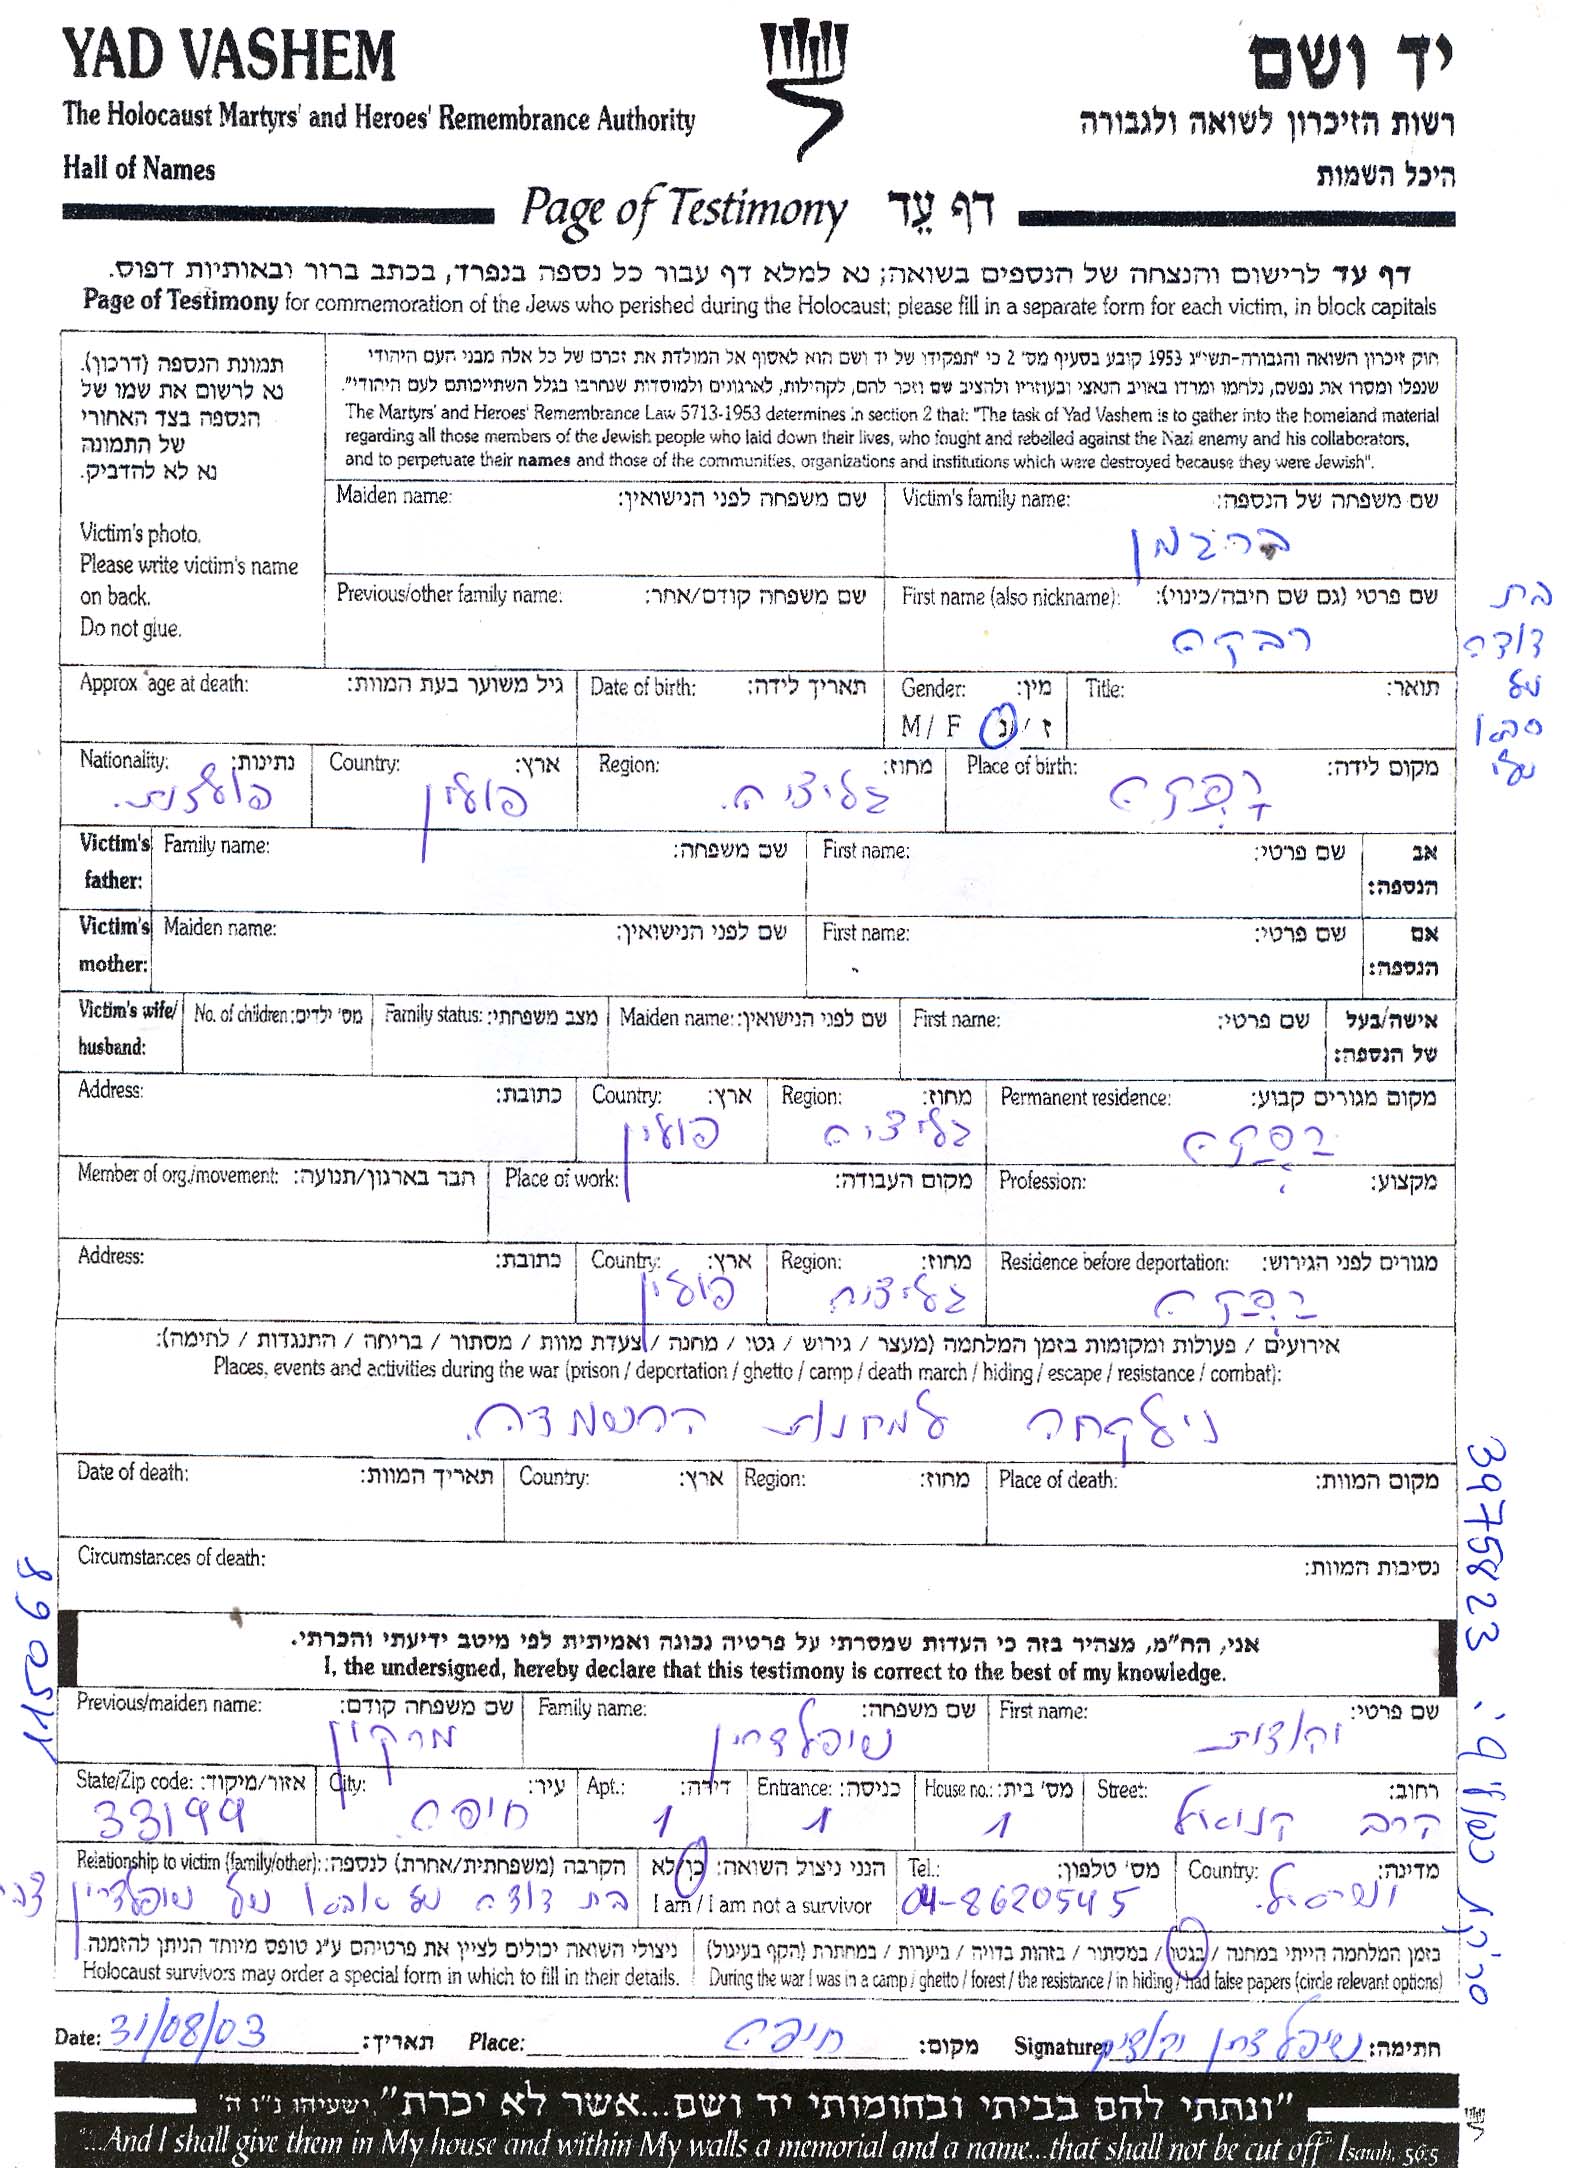 YAD VASHEM
יד ושם
The Holocaust Martyrs' and Heroes' Remembrance Authority
רשות הזיכרון לשואה ולגבורה
Hall of Names
היכל השמות
Page of Testimony דף עֵד
דף עד לרישום והנצחה של הנספים בשואה; נא למלא דף עבור כל נספה בנפרד, בכתב ברור ובאותיות דפוס.
Page of Testimony for commemoration of the Jews who perished during the Holocaust; please fill in a separate form for each victim, in block capitals
תמונת הנספה (דרכון).
נא לרשום את שמו של
הנספה בצד האחורי
של התמונה
נא לא להדביק.
Victim's photo.
Please write victim's name
on back.
Do not glue.
חוק זיכרון השואה והגבורה-תשי"ג 1953 קובע בסעיף מס' 2 כי "תפקידו של יד ושם הוא לאסוף אל המולדת את זכרם של כל אלה מבני העם היהודי
שנפלו ומסרו את נפשם, נלחמו ומרדו באויב הנאצי ובעוזריו ולהציב שם וזכר להם, לקהילות, לארגונים ולמוסדות שנחרבו בגלל השתייכותם לעם היהודי".
The Martyrs' and Heroes' Remembrance Law 5713-1953 determines in section 2 that: "The task of Yad Vashem is to gather into the homeland material
regarding all those members of the Jewish people who laid down their lives, who fought and rebelled against the Nazi enemy and his collaborators,
and to perpetuate their names and those of the communities, organizations and institutions which were destroyed because they were Jewish".
Victim's family name: שם משפחה של הנספה:
Maiden name: שם משפחה לפני הנישואין:
ברגמן
First name (also nickname): שם פרטי (גם שם חיבה/כינוי):
Previous/other family name: שם משפחה קודם/אחר:
רבקה
בת
דודה
של
סבא
שלי
Title: תואר:
Gender: מין:
M / F ז / נ
Date of birth: תאריך לידה:
Approx age at death: גיל משוער בעת המוות:
Place of birth: מקום לידה:
Region: מחוז:
גליציה.
Country: ארץ:
פולין
Nationality: נתינות:
פולנית.
Victim's father: אב הנספה:
First name: שם פרטי:
Family name: שם משפחה:
Victim's mother: אם הנספה:
First name: שם פרטי:
Maiden name: שם לפני הנישואין:
Victim's wife/ husband: אישה/בעל של הנספה:
First name: שם פרטי:
Maiden name: שם לפני הנישואין:
Family status: מצב משפחתי:
No. of children: מס' ילדים:
Permanent residence: מקום מגורים קבוע:
Region: מחוז:
גליציה
Country: ארץ:
פולין
Address: כתובת:
Profession: מקצוע:
Place of work: מקום העבודה:
Member of org./movement: חבר בארגון/תנועה:
Residence before deportation: מגורים לפני הגירוש:
Region: מחוז:
גליציה
Country: ארץ:
פולין
Address: כתובת:
אירועים / פעולות ומקומות בזמן המלחמה (מעצר / גירוש / גטו / מחנה / צעדת מוות / מסתור / בריחה / התנגדות / לחימה):
Places, events and activities during the war (prison / deportation / ghetto / camp / death march / hiding / escape / resistance / combat):
נילקחה למחנות השמדה.
Place of death: מקום המוות:
Region: מחוז:
Country: ארץ:
Date of death: תאריך המוות:
Circumstances of death: נסיבות המוות:
3975823
115068
אני, הח"מ, מצהיר בזה כי העדות שמסרתי על פרטיה נכונה ואמיתית לפי מיטב ידיעתי והכרתי.
I, the undersigned, hereby declare that this testimony is correct to the best of my knowledge.
First name: שם פרטי:
Family name: שם משפחה:
Previous/maiden name: שם משפחה קודם:
מרקון
Street: רחוב:
הרב קניאל
House no.: מס' בית:
1
Entrance: כניסה:
1
Apt.: דירה:
1
City: עיר:
חיפה
State/Zip code: אזור/מיקוד:
33199
Country: מדינה:
ישראל.
Tel.: מס' טלפון:
04-8620545
הנני ניצול השואה: כן/לא
I am / I am not a survivor
Relationship to victim (family/other): הקרבה (משפחתית/אחרת) לנספה:
בת דודה של אבא של
בזמן המלחמה הייתי במחנה / בגטו / במסתור / בזהות בדויה / ביערות / במחתרת (הקף בעיגול)
During the war I was in a camp / ghetto / forest / the resistance / in hiding / had false papers (circle relevant options)
ניצולי השואה יכולים לציין את פרטיהם ע"ג טופס מיוחד הניתן להזמנה.
Holocaust survivors may order a special form in which to fill in their details.
Date: 31/08/03 תאריך: Place: חיפה מקום: Signature: חתימה:
"ונתתי להם בביתי ובחומותי יד ושם...אשר לא יכרת" ישעיהו נ"ו ה'
"...And I shall give them in My house and within My walls a memorial and a name...that shall not be cut off" Isaiah, 56:5